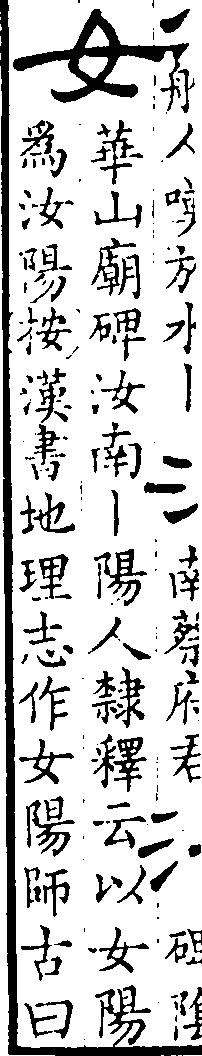 南蔡府君
女
華山廟碑汝南丨陽人隸釋云以女陽
爲汝陽按漢書地理志作女陽師古曰